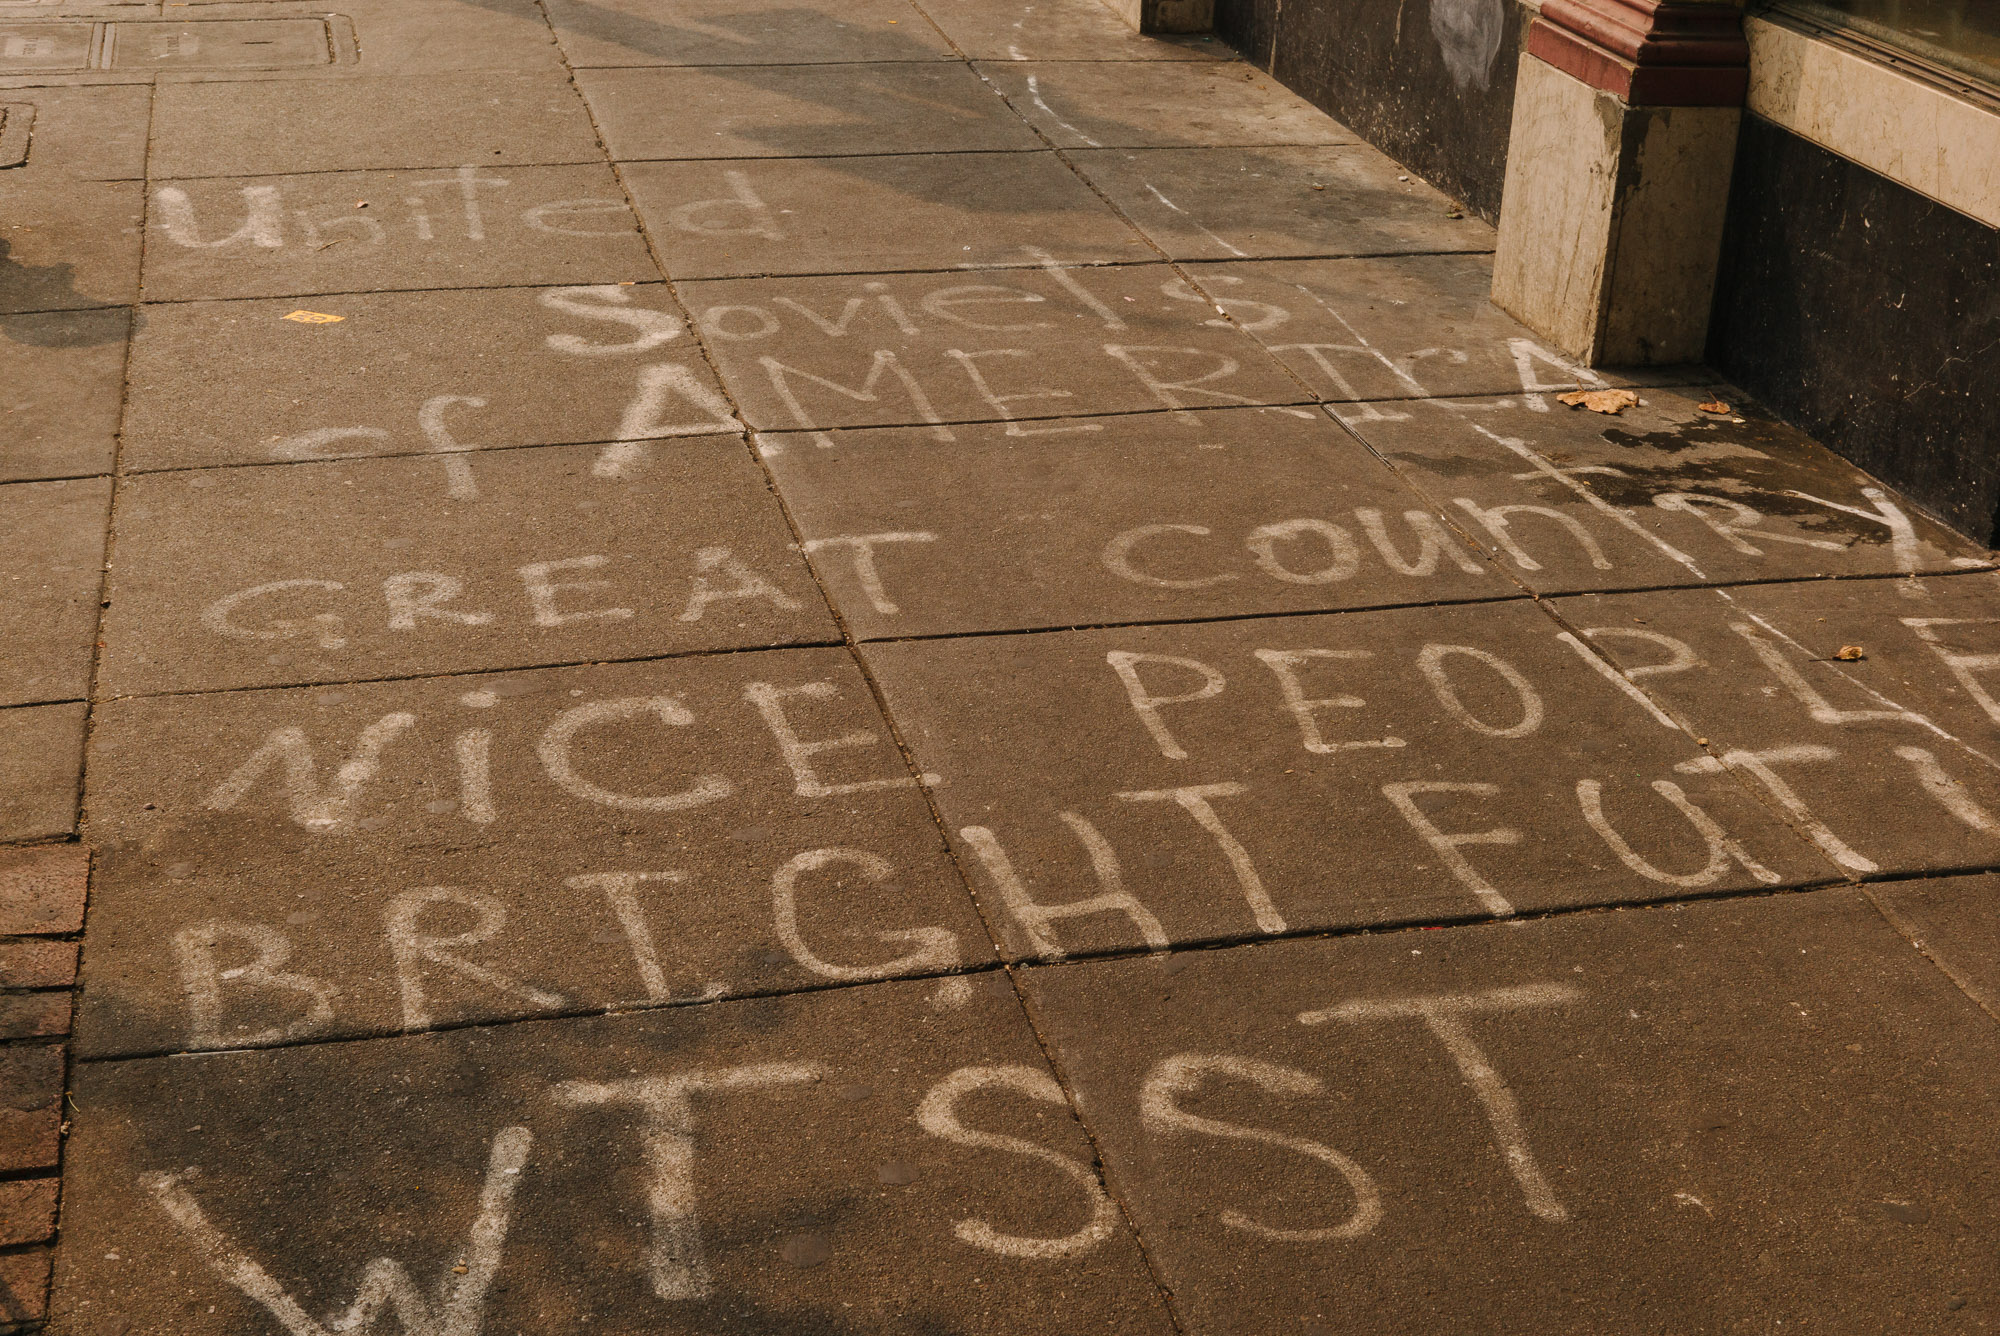 United
Soviets
of AMERICA
GREAT COUNTRY
NiCE PEOPLE
BRIGHT FUTU
WTSST